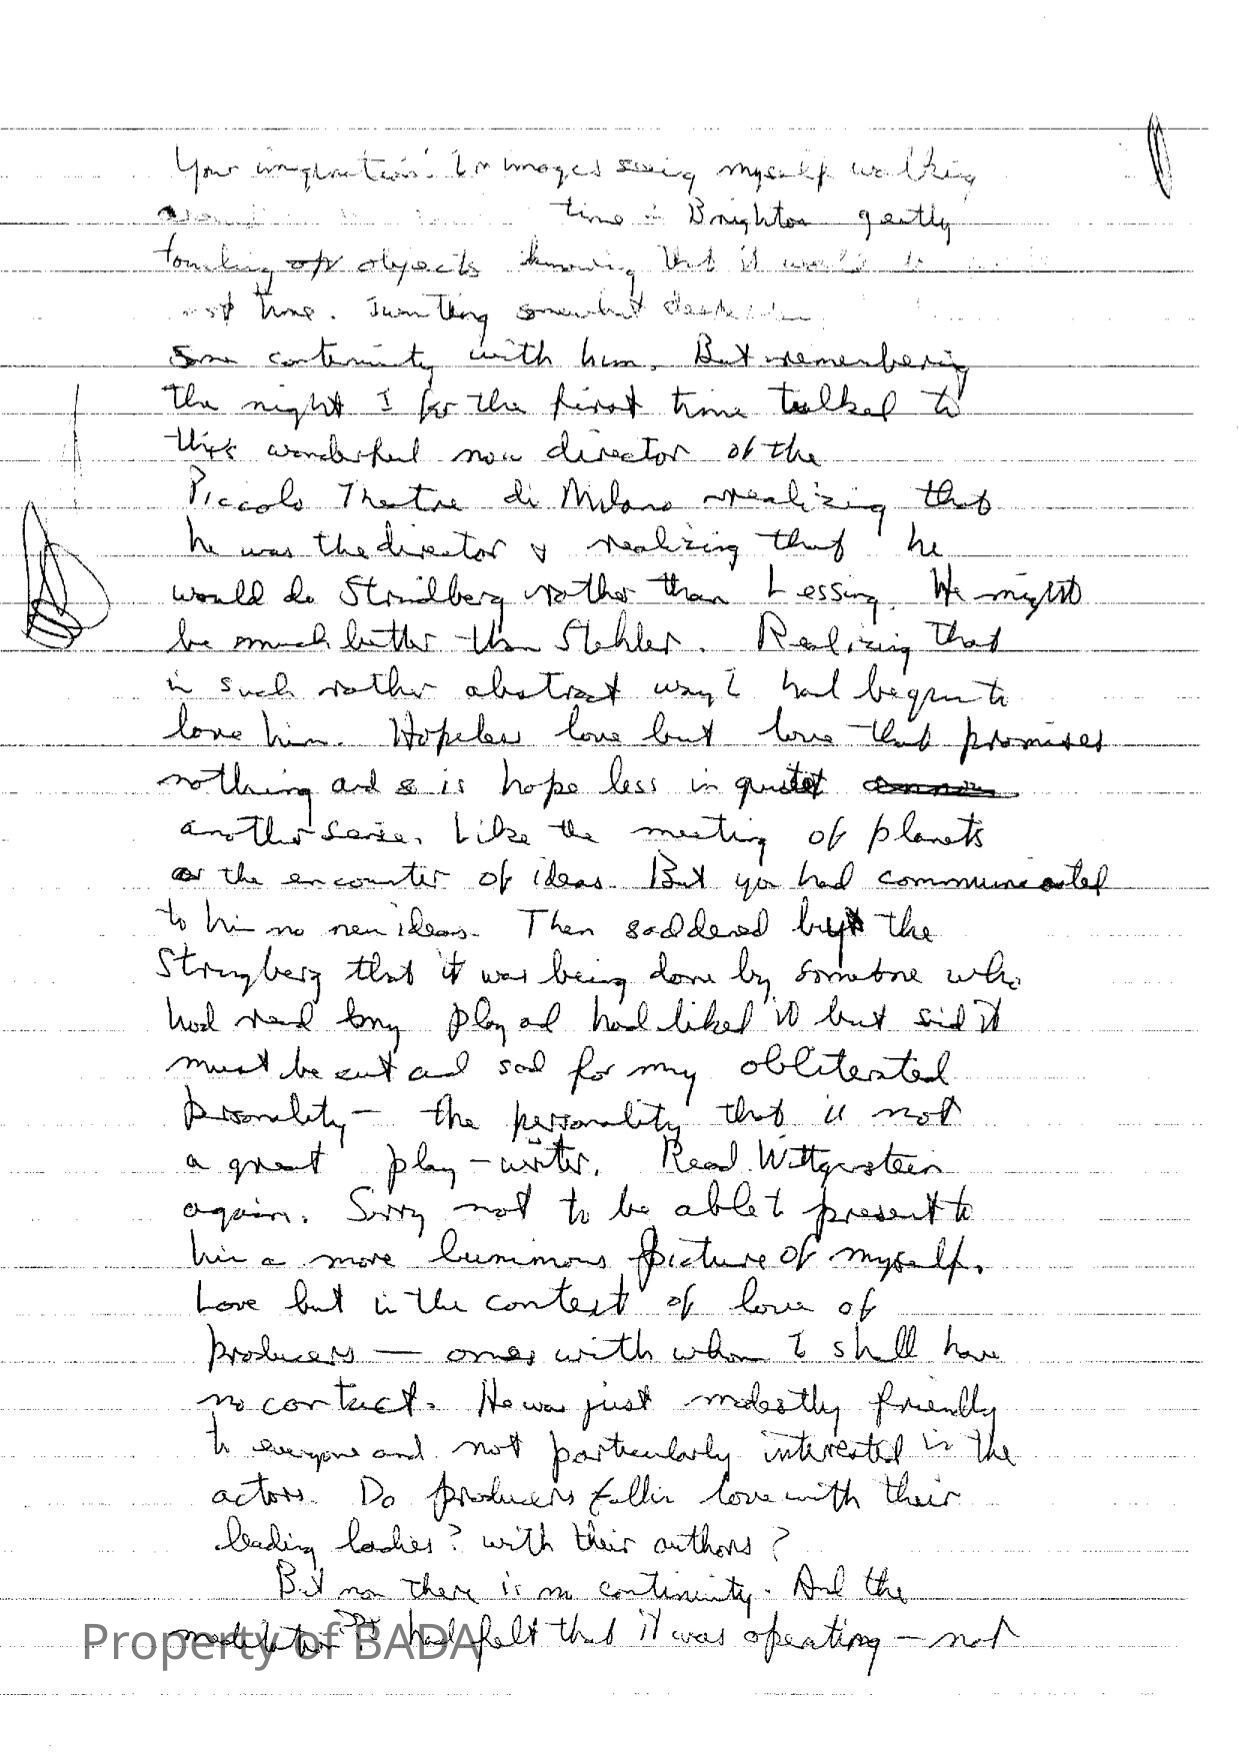 Your imagination. In images seeing myself walking
time in Brighton gently
touching objects knowing that it would
not time. Wanting somewhat
Some continuity with him. But remembering
the night I for the first time talked to
this wonderful new director of the
Piccolo Theatre di Milano realizing that
he was the director & realizing that he
would do Strindberg rather than Lessing. He might
be much better than Stehler. Realizing that
in such rather abstract way I had begun to
love him. Hopeless love but love that promises
nothing and is hope less in quite
another sense. Like the meeting of planets
or the encounter of ideas. But you had communicated
to him no new ideas. Then saddened by the
Stringberg that it was being done by someone who
had read long play and had liked it but said it
must be cut and sad for my obliterated
personality — the personality that is not
a great play-writer. Read Wittgenstein
again. Sorry not to be able to present to
him a more luminous picture of myself.
Love but in the context of love of
producers — ones with whom I shall have
no contact. He was just modestly friendly
to everyone and not particularly interested in the
actors. Do producers fall in love with their
leading ladies? with their authors?
But now there is no continuity. And the
had felt that it was operating — not
Property of BADA